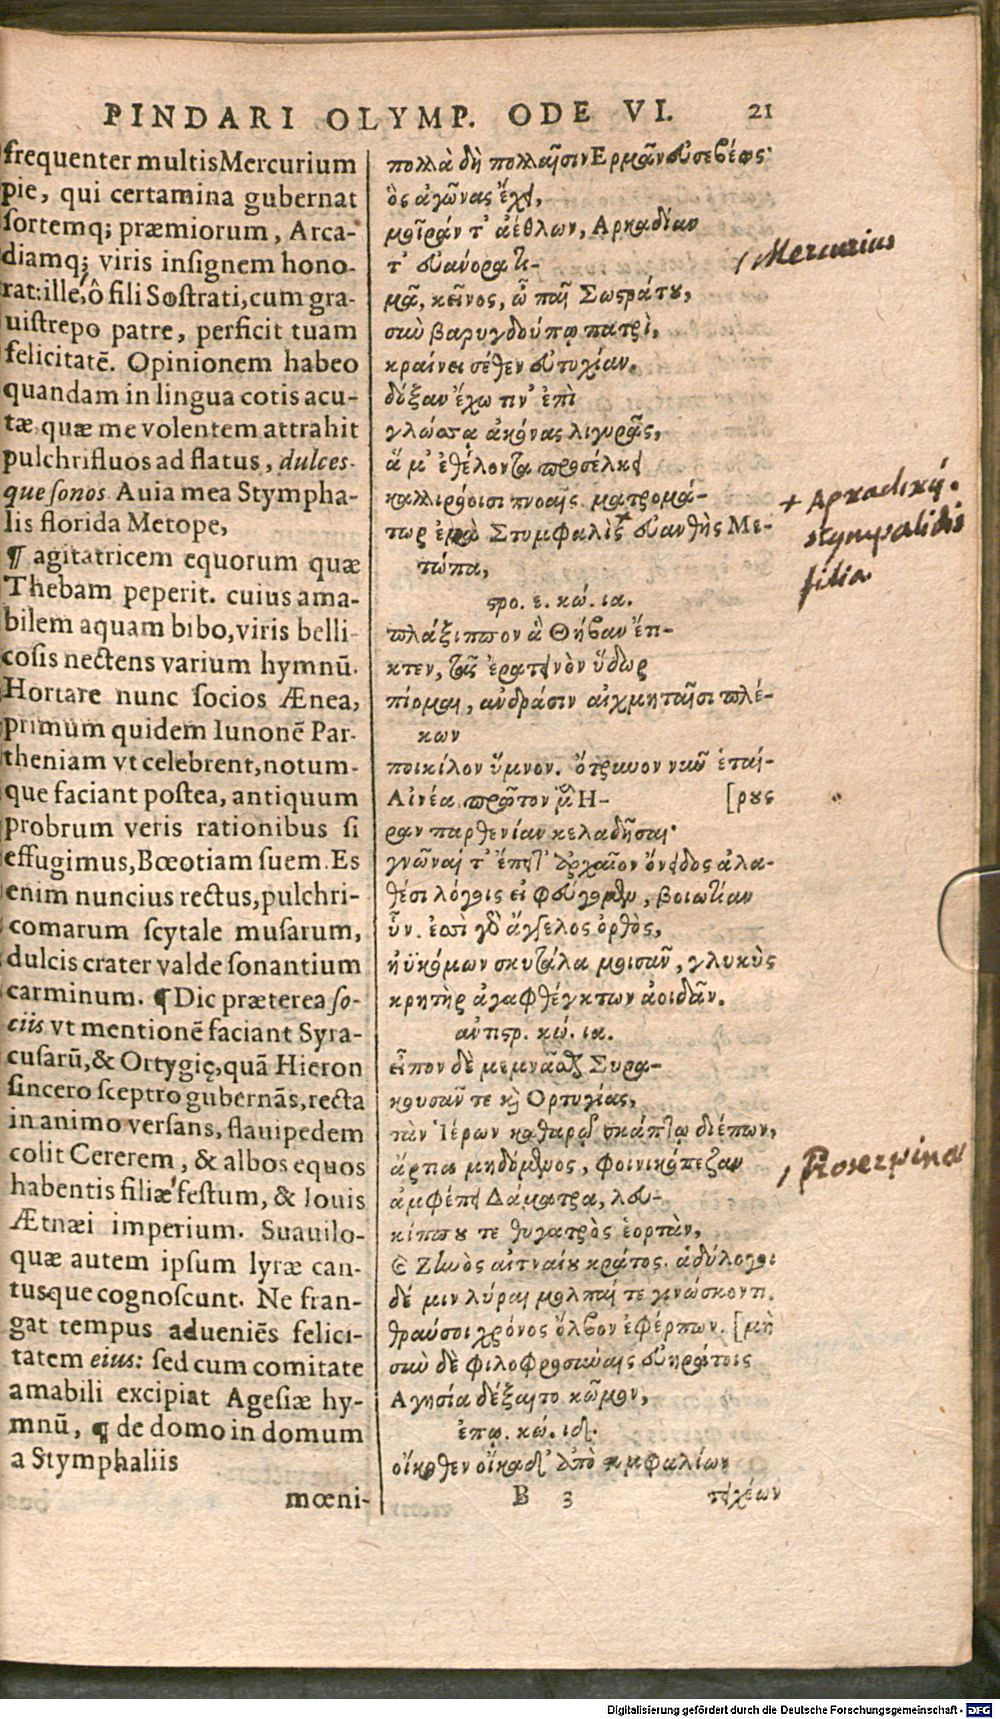 PINDARI OLYMP. ODE VI. 21
frequenter multis Mercurium
pie, qui certamina gubernat
sortemq; præmiorum, Arca-
diamq; viris insignem hono-
rat: ille, ô fili Sostrati, cum gra-
uistrepo patre, perficit tuam
felicitatē. Opinionem habeo
quandam in lingua cotis acu-
tæ, quæ me volentem attrahit
pulchrifluos ad flatus, dulces-
que sonos. Auia mea Stympha-
lis florida Metope,
¶ agitatricem equorum quæ
Thebam peperit. cuius ama-
bilem aquam bibo, viris belli-
cosis nectens varium hymnū.
Hortare nunc socios Ænea,
primum quidem Iunonē Par-
theniam vt celebrent, notum-
que faciant postea, antiquum
probrum veris rationibus si
effugimus, Bœotiam suem. Es
enim nuncius rectus, pulchri-
comarum scytale musarum,
dulcis crater valde sonantium
carminum. ¶ Dic præterea so-
ciis vt mentionē faciant Syra-
cusarū, & Ortygię, quā Hieron
sincero sceptro gubernās, recta
in animo versans, flauipedem
colit Cererem, & albos equos
habentis filiæ festum, & Iouis
Ætnæi imperium. Suauilo-
quæ autem ipsum lyræ can-
tusque cognoscunt. Ne fran-
gat tempus adueniēs felici-
tatem eius: sed cum comitate
amabili excipiat Agesiæ hy-
mnū, ¶ de domo in domum
a Stymphaliis
mœni-
πολλὰ δὴ πολλαῖσιν Ερμᾶν εὐσεβέως·
ὃς ἀγῶνας ἔχει,
μοῖράν τ' ἀέθλων, Αρκαδίαν
τ' εὐάνορα τι-
μᾷ, κεῖνος, ὦ παῖ Σωστράτου,
σὺν βαρυγδούπῳ πατρὶ,
κραίνει σέθεν εὐτυχίαν.
δόξαν ἔχω τιν' ἐπὶ
γλώσσᾳ ἀκόνας λιγυρᾶς,
ἅ μ' ἐθέλοντα προσέλκει
καλλιρόοισι πνοαῖς. ματρομά-
τωρ ἐμὰ Στυμφαλὶς + εὐανθὴς Με-
τώπα,
στρο. ε. κώ. ια.
πλάξιππον ἃ Θήβαν ἔτι-
κτεν, τᾶς ἐρατεινὸν ὕδωρ
πίομαι, ἀνδράσιν αἰχμηταῖσι πλέ-
κων
ποικίλον ὕμνον. ὄτρυνον νῦν ἑταί-
Αἰνέα, πρῶτον μὲν Η- [ρους
ραν παρθενίαν κελαδῆσαι·
γνῶναί τ' ἔπειτ' ἀρχαῖον ὄνειδος ἀλα-
θέσι λόγοις εἰ φεύγομεν, βοιωτίαν
ὗν. ἐσσὶ γὰρ ἄγγελος ὀρθὸς,
ἠϋκόμων σκυτάλα μοισᾶν, γλυκὺς
κρητὴρ ἀγαφθέγκτων ἀοιδᾶν.
ἀντιστρ. κώ. ια.
εἶπον δὲ μεμνᾶσθαι Συρα-
κουσᾶν τε καὶ Ορτυγίας,
τὰν Ἱέρων καθαρῷ σκάπτῳ διέπων,
ἄρτια μηδόμενος, φοινικόπεζαν
ἀμφέπει Δάματρα, λευ-
κίππου τε θυγατρὸς ἑορτὰν,
καὶ Ζηνὸς αἰτναίου κράτος. ἁδύλογοι
δέ μιν λύραι μολπαί τε γινώσκοντι.
θραύσοι χρόνος ὄλβον ἐφέρπων. [μὴ
σὺν δὲ φιλοφροσύναις εὐηράτοις
Αγησία δέξαιτο κῶμον,
ἐπῳ. κώ. ιδ.
οἴκοθεν οἴκαδ' ἀπὸ στυμφαλίων
B 3 τειχέων
/ Mercurius
+ Αρκαδική.
stympalidis
filia
/ Proserpina
Digitalisierung gefördert durch die Deutsche Forschungsgemeinschaft - DFG